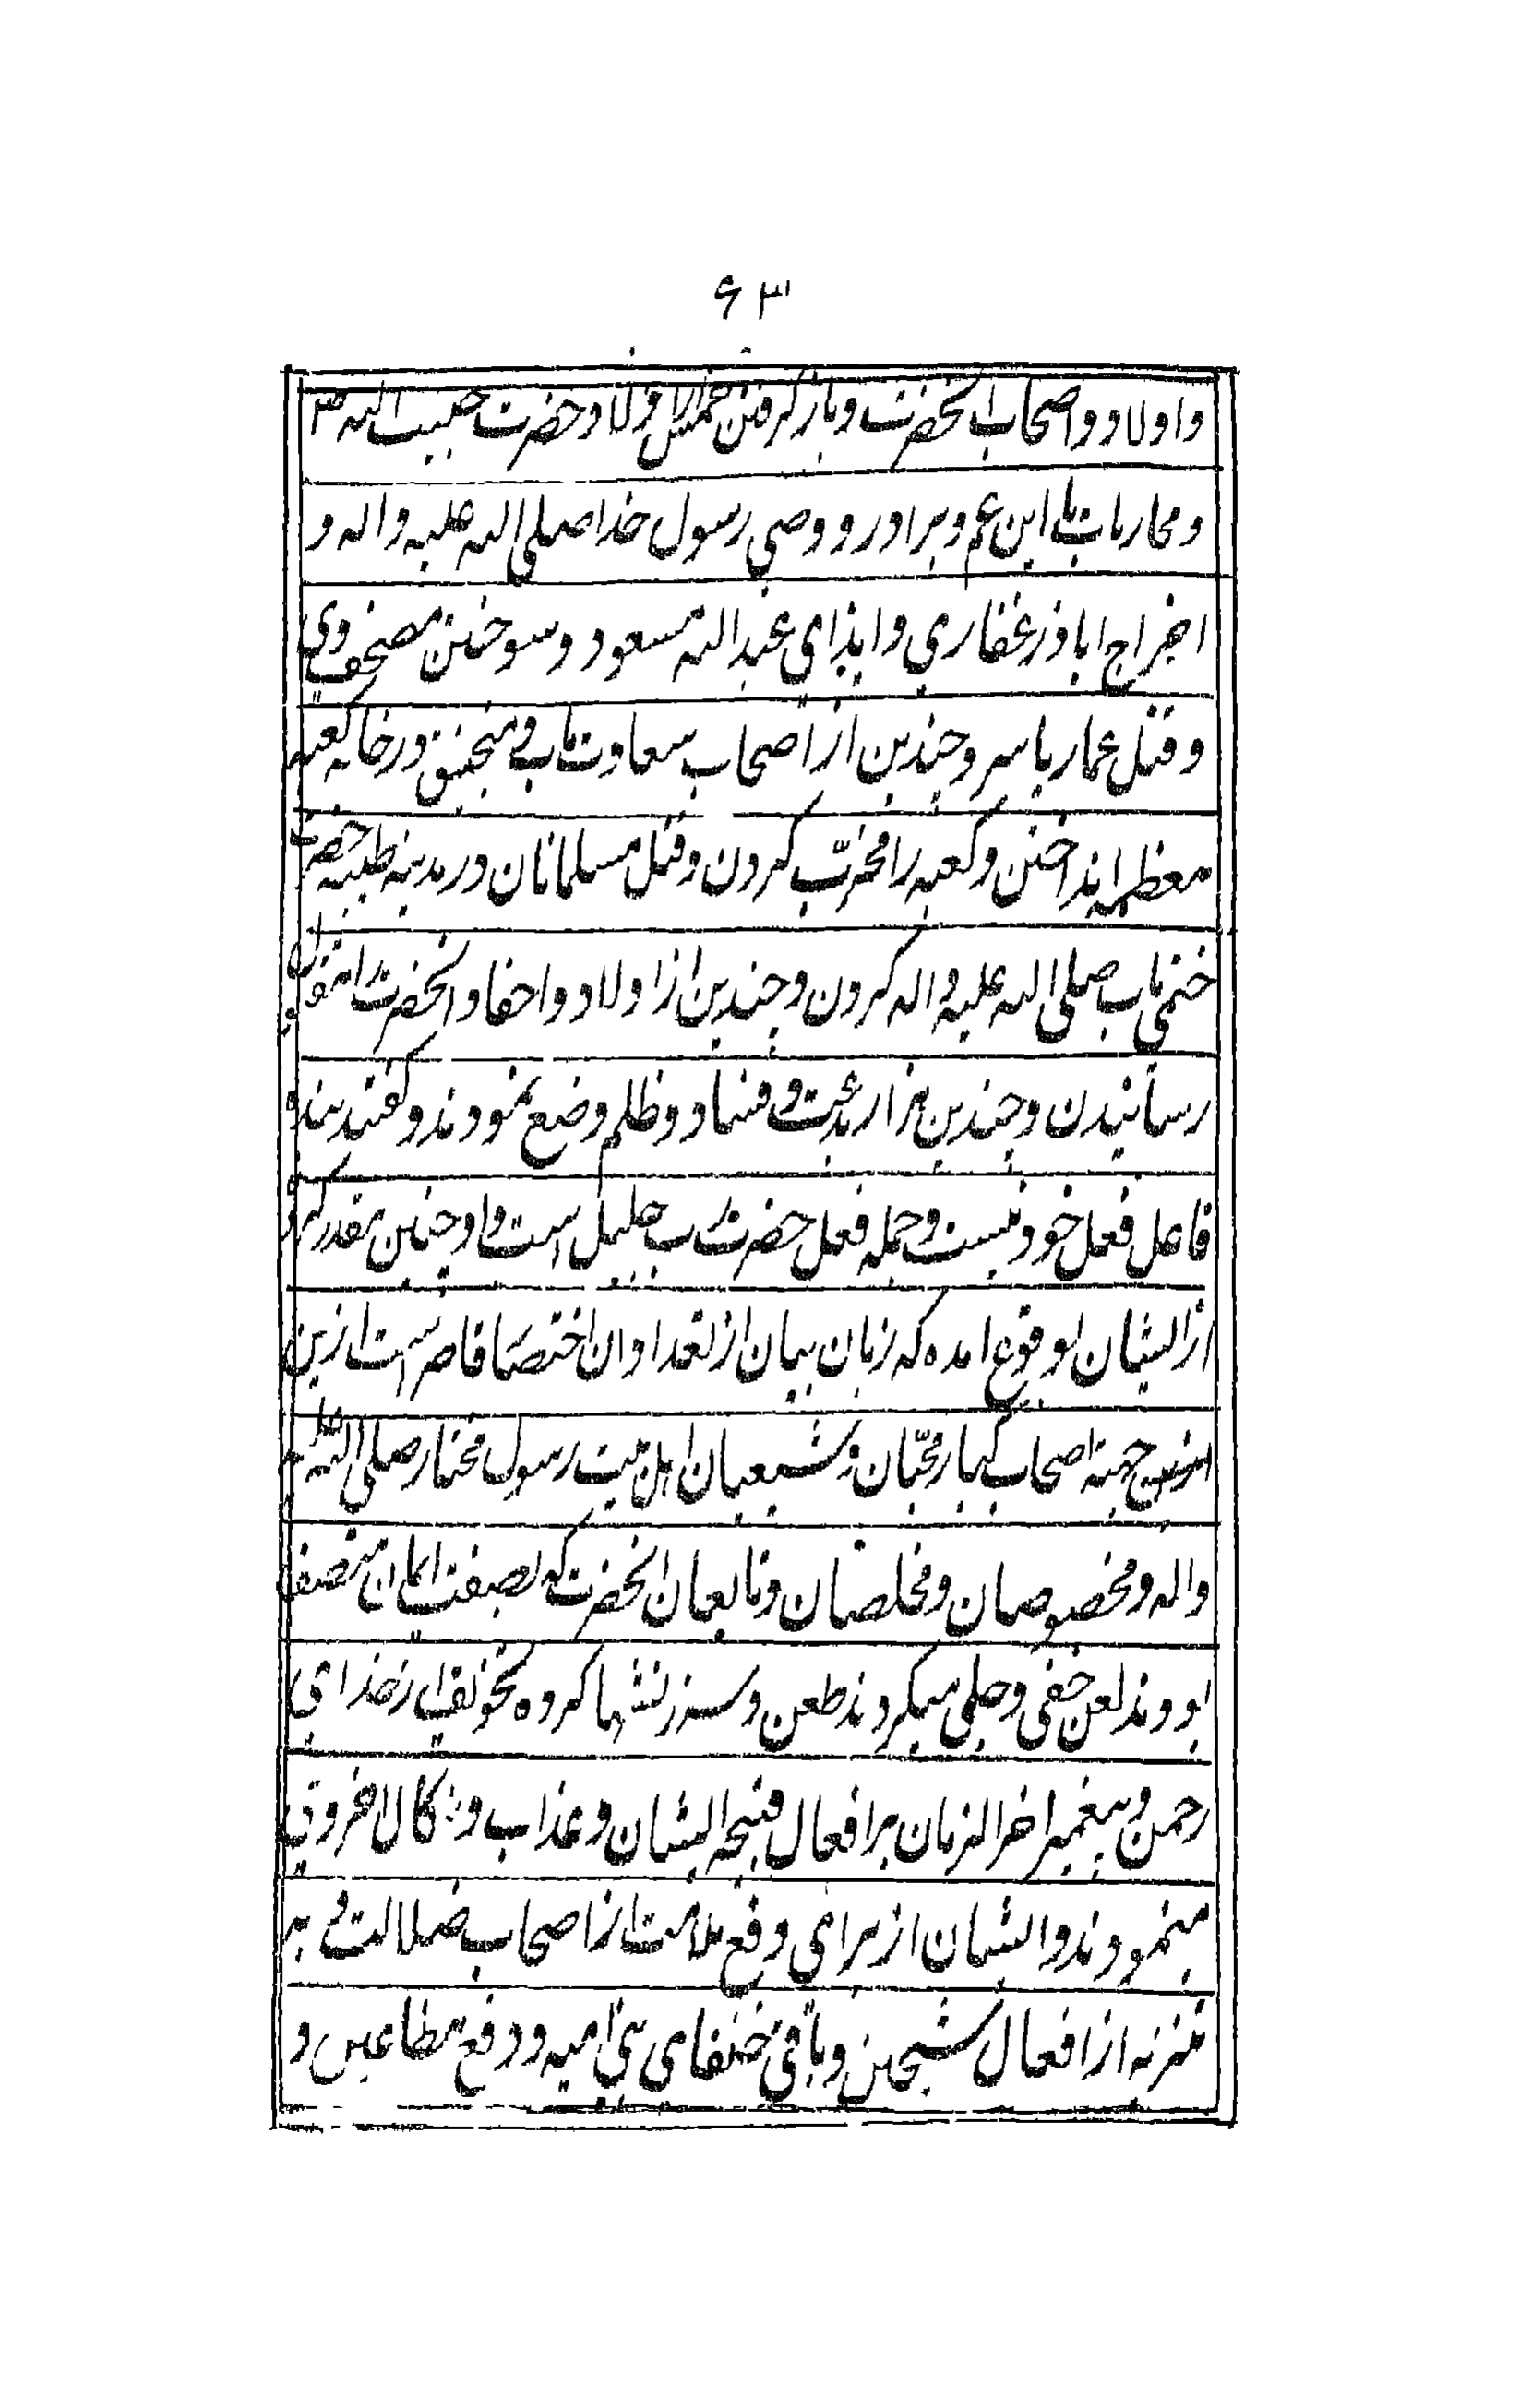 ۶۳
واولاد و اصحاب انحضرت و باز گرفتن خمس از اولاد حضرت حبیب الله ص
و محاربات با ابن عم و برادر و وصی رسول خدا صلی الله علیه و اله و
اخراج اباذر غفاری و ایذای عبدالله مسعود و سوختن مصحف وی
و قتل عمار یاسر و چندین از اصحاب سعادت ماب و منجنیق در خانه کعبه
معظمه انداختن و کعبه را مخرّب کردن و قتل مسلمانان در مدینه طیبه حضرت
ختمی ماب صلی الله علیه و اله کردن و چندین از اولاد و احفاد انحضرت را بقتل
رسانیدن و چندین هزار بدعت و فساد و ظلم وضع نمودند و گفتند بنده
فاعل فعل خود نیست و جمله فعل حضرت رب جلیل است و او چنین مقدر کرده
از ایشان بوقوع امده که زبان بیان از تعداد ان اختصا قاصر است ازین
جهته اصحاب کبار محبّان و شیعیان اهل بیت رسول مختار صلی الله علیه
واله و مخصوصان و مخلصان و تابعان انحضرت که بصفت ایمان متصف
بودند لعن خفی و جلی میکردند طعن و سرزنشها کرده تخویف از خدای
رحمن و پیغمبر اخر الزمان بر افعال قبیحه ایشان و عذاب و نکال اخروی
مینمودند و ایشان از برای دفع ملامت از اصحاب ضلالت و به
تنزیه از افعال شیخین و باقی خلفای بنی امیه و دفع مطاعن و